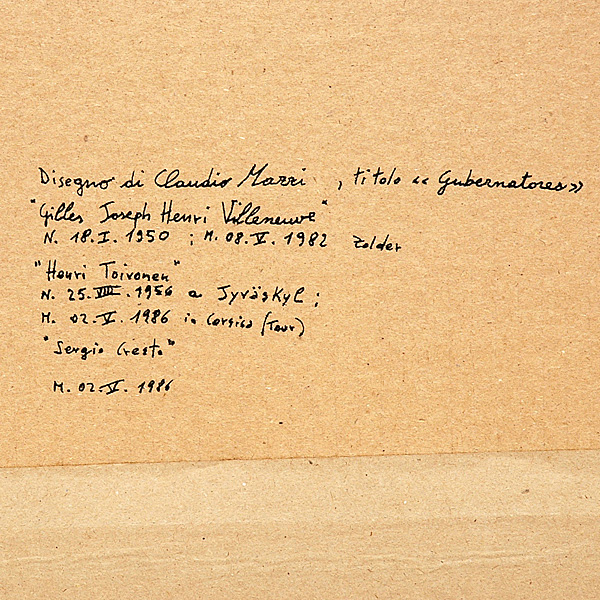 Disegno di Claudio Mazzi , titolo «Gubernatores»
"Gilles Joseph Henri Villeneuve"
N. 18.I.1950 ; M. 08.V.1982 Zolder
"Henri Toivonen"
N. 25.VIII.1956 a Jyväskyl ;
M. 02.V.1986 in Corsica (Tour)
"Sergio Cresto"
M. 02.V.1986